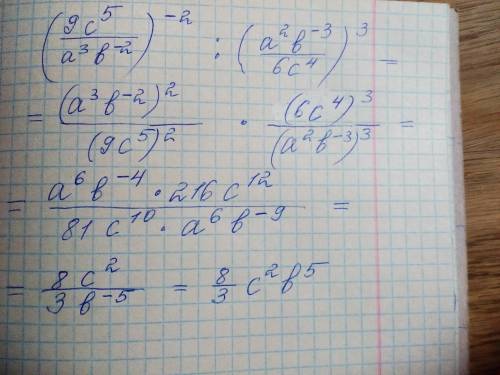 (9c⁵/a³b⁻²)⁻² : (a²b⁻³/6c⁴)³ =
= (a³b⁻²)²/(9c⁵)² · (6c⁴)³/(a²b⁻³)³ =
= a⁶b⁻⁴ · 216c¹²/81c¹⁰ · a⁶b⁻⁹ =
= 8c²/3b⁻⁵ = 8/3 c²b⁵